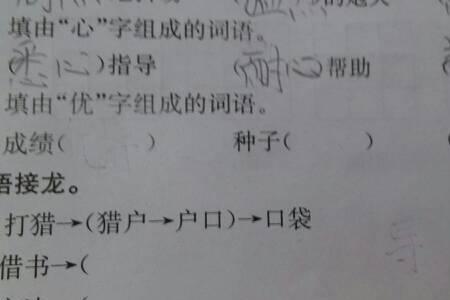 的
填由“心”字组成的词语。
(悉心)指导 (耐心)帮助 (
填由“优”字组成的词语。
成绩( ) 种子( )
语接龙。
打猎→(猎户→户口)→口袋
借书→(
导